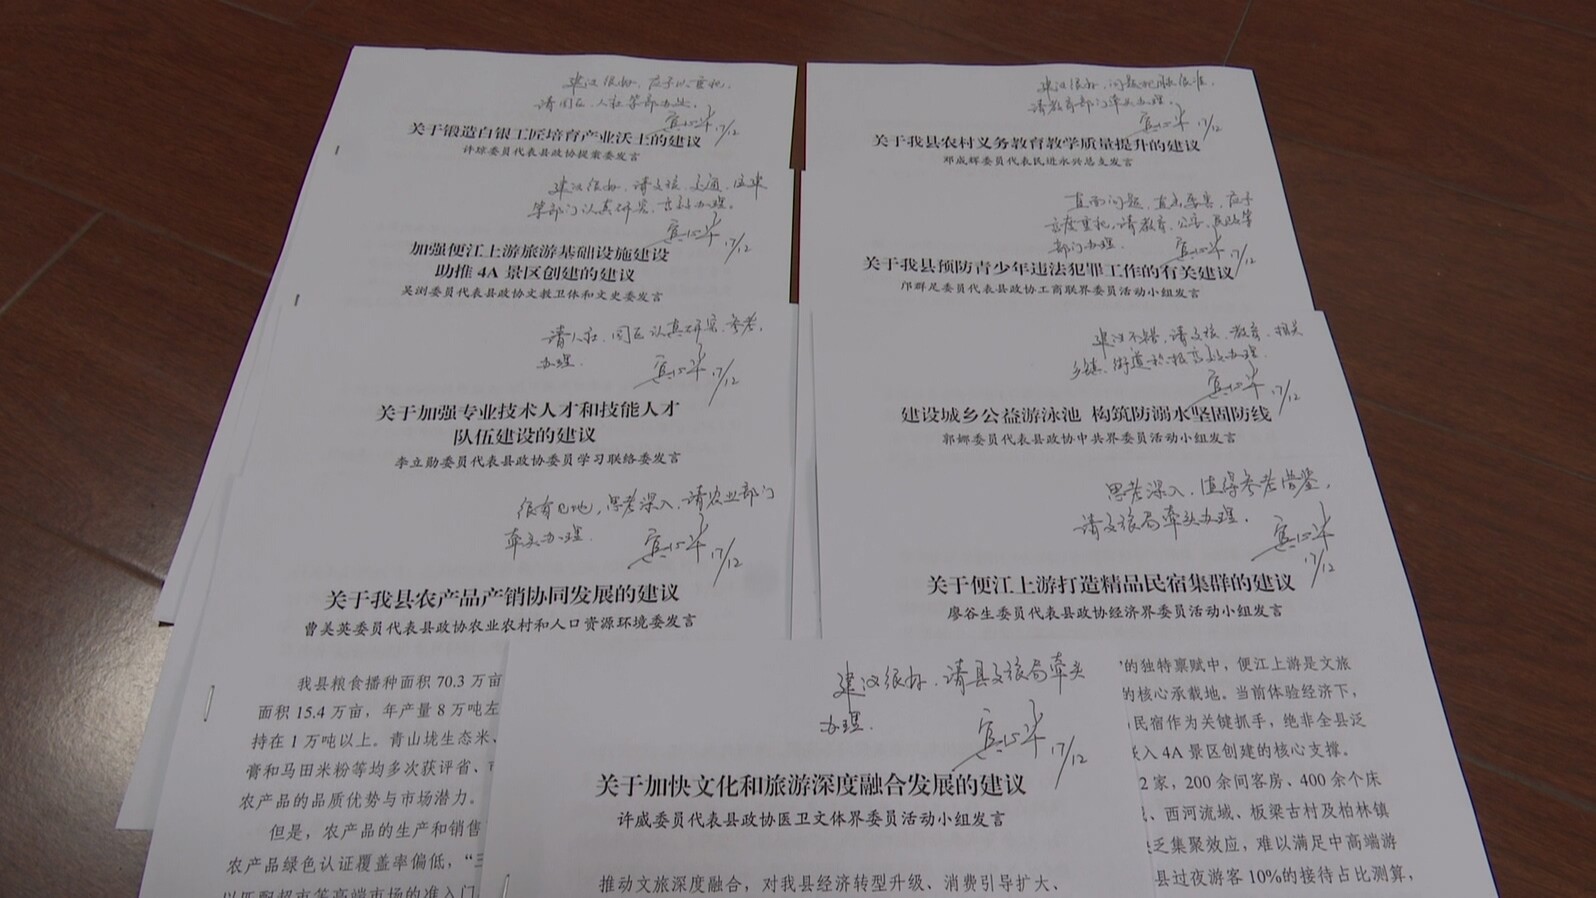 建议很好，应予以重视，
请园区、人社等部办理。
17/12
关于锻造白银工匠培育产业沃土的建议
许琼委员代表县政协提案委发言
建议很好，请文旅、交通、住建
等部门认真研究、办理。
17/12
加强便江上游旅游基础设施建设
助推 4A 景区创建的建议
吴浏委员代表县政协文教卫体和文史委发言
请人社、园区认真研究、参考，
办理。
17/12
关于加强专业技术人才和技能人才
队伍建设的建议
李立勋委员代表县政协委员学习联络委发言
很有见地，思考深入，请农业部门
牵头办理。
17/12
关于我县农产品产销协同发展的建议
曹美英委员代表县政协农业农村和人口资源环境委发言
我县粮食播种面积 70.3 万亩
面积 15.4 万亩，年产量 8 万吨左
持在 1 万吨以上。青山垅生态米、
膏和马田米粉等均多次获评省、
农产品的品质优势与市场潜力。
但是，农产品的生产和销售
农产品绿色认证覆盖率偏低，“三
以匹配超市等高端市场的准入门
建议很好，问题把脉很准，
请教育部门牵头办理。
17/12
关于我县农村义务教育教学质量提升的建议
邓成辉委员代表民进永兴总支发言
直面问题，直击要害，应予
高度重视，请教育、公安、民政等
部门办理。
17/12
关于我县预防青少年违法犯罪工作的有关建议
邝群足委员代表县政协工商联界委员活动小组发言
建议不错，请文旅、教育、相关
乡镇、街道办理。
17/12
建设城乡公益游泳池 构筑防溺水坚固防线
郭娜委员代表县政协中共界委员活动小组发言
思考深入，值得参考借鉴，
请文旅局牵头办理。
17/12
关于便江上游打造精品民宿集群的建议
廖谷生委员代表县政协经济界委员活动小组发言
的独特禀赋中，便江上游是文旅
的核心承载地。当前体验经济下，
民宿作为关键抓手，绝非全县泛
入 4A 景区创建的核心支撑。
2 家，200 余间客房、400 余个床
、西河流域、板梁古村及柏林镇
乏集聚效应，难以满足中高端游
县过夜游客 10%的接待占比测算，
建议很好，请县文旅局牵头
办理。
17/12
关于加快文化和旅游深度融合发展的建议
许威委员代表县政协医卫文体界委员活动小组发言
推动文旅深度融合，对我县经济转型升级、消费引导扩大、